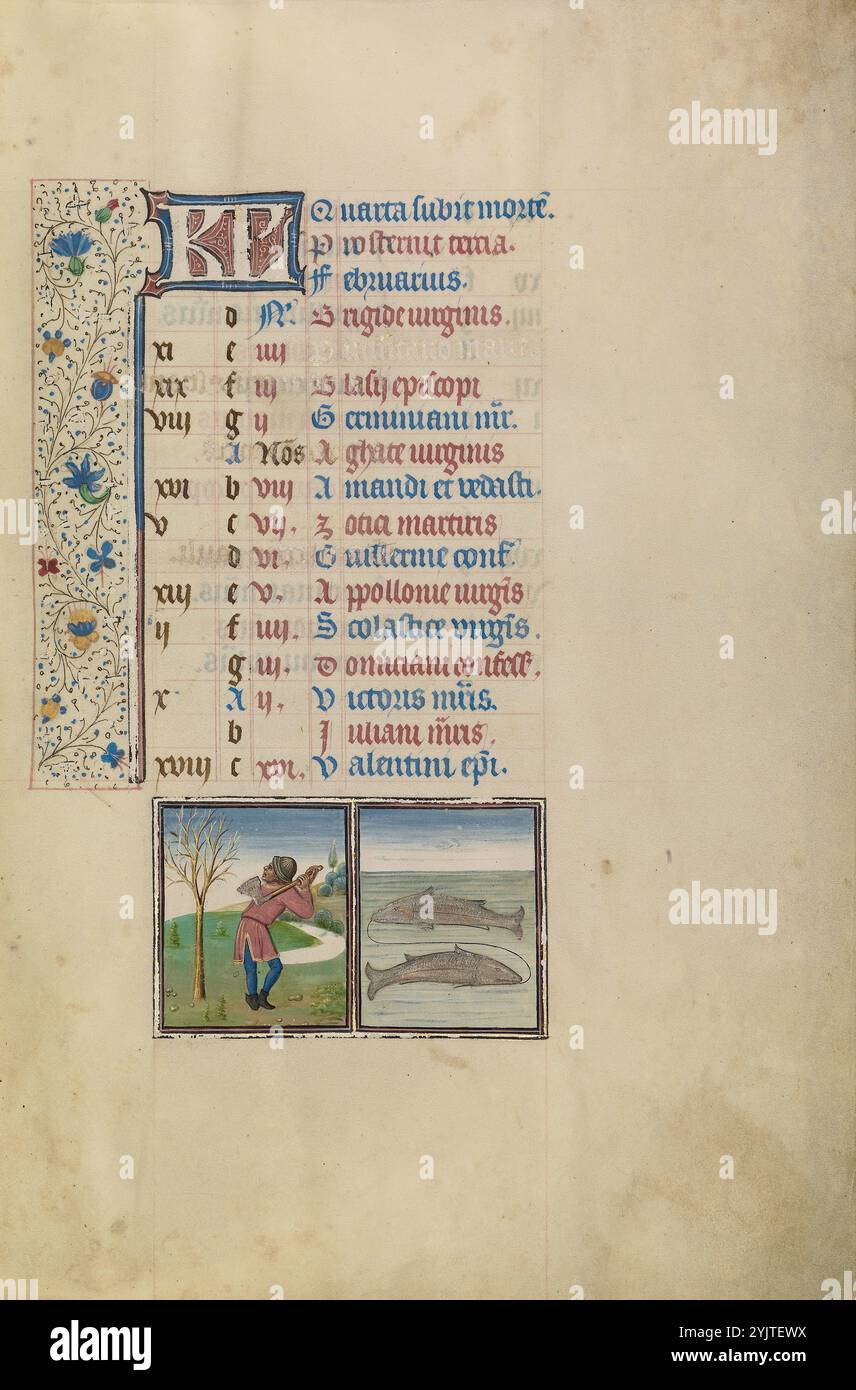 KL Quarta subit mortē.
Prosternit tercia.
Februarius.
d N̄. Brigide uirginis.
xi e iiij
xix f iij Blasij episcopi
viij g ij Geminiani m̄r.
A Nōs Aghate uirginis
xvi b viij Amandi et vedasti.
v c vij. Zotici martiris
d vi. Guillerme conf̄.
xiij e v. Appollonie uirgīs
ij f iiij. Scolastice virgīs.
g iij. Domiciani confess̄.
x A ij. Victoris m̄ris.
b Iuliani m̄ris.
xviij c xvi. Valentini ep̄i.
alamy
Image ID: 2YJTEWX
www.alamy.com